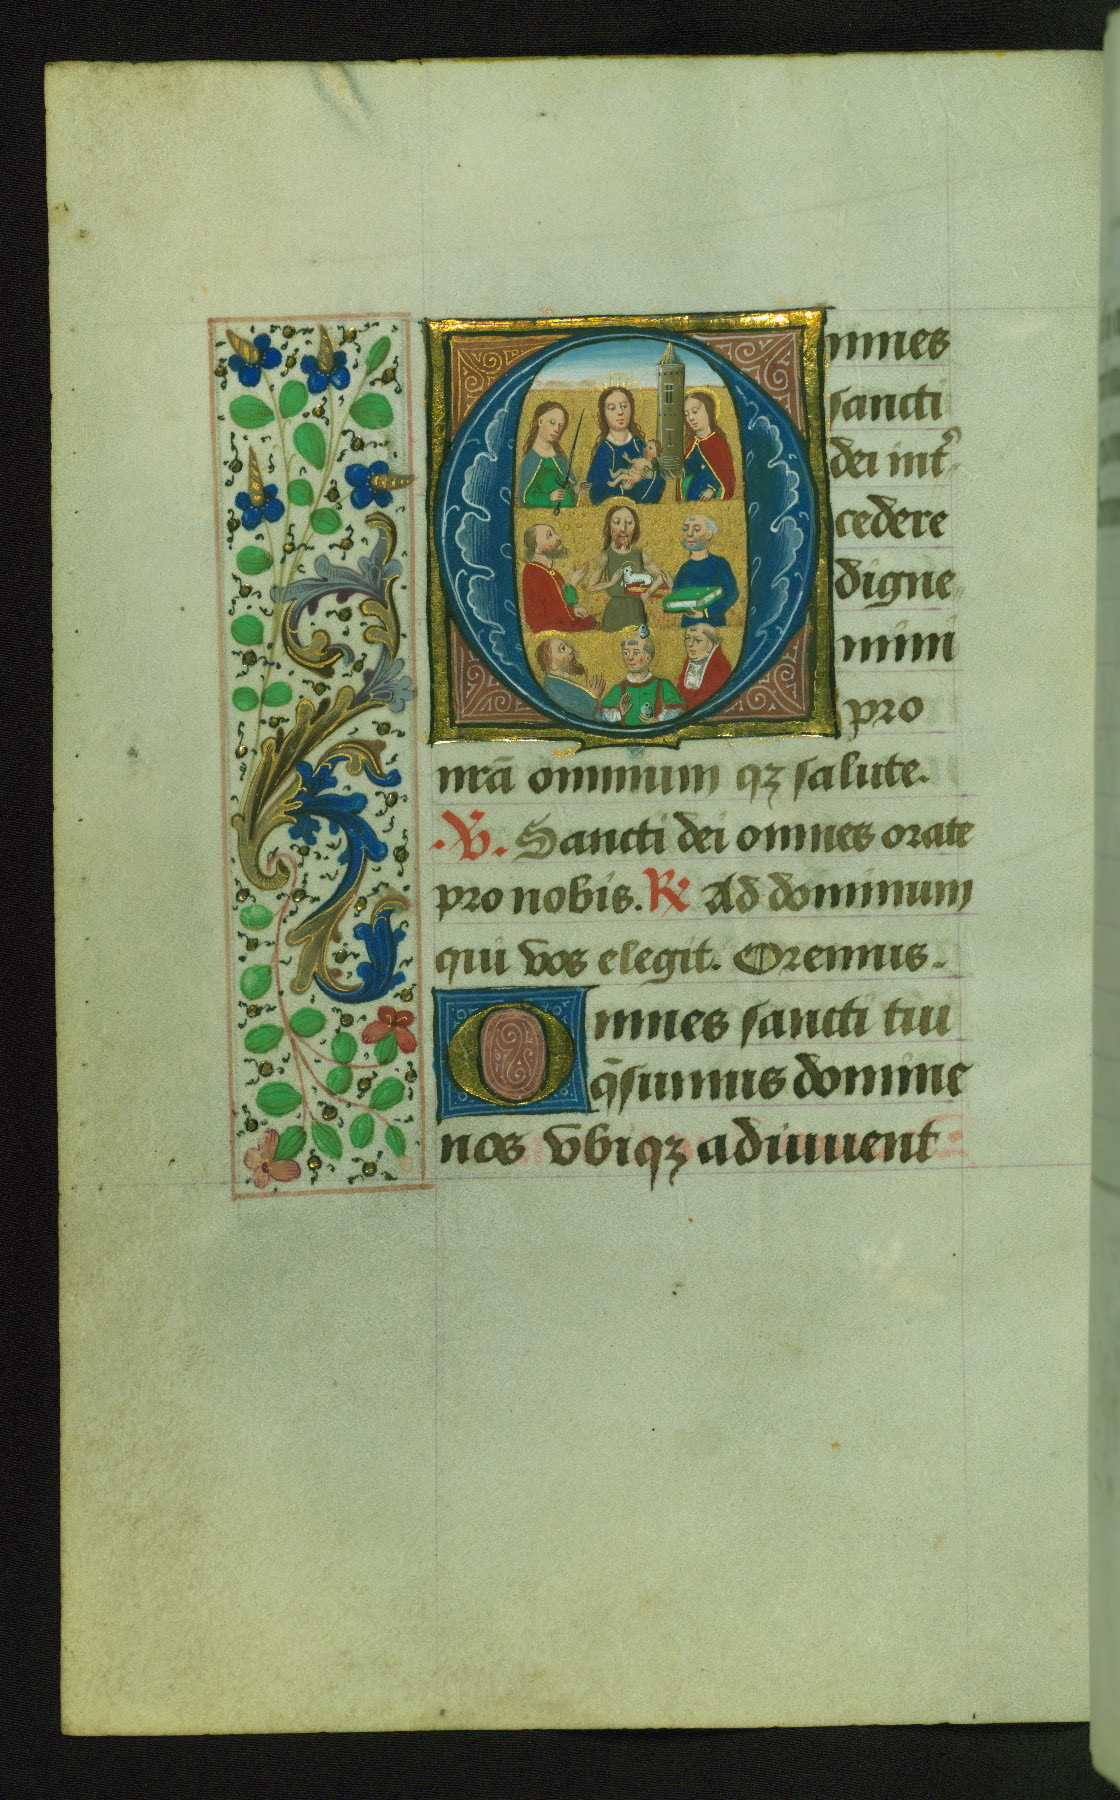 Omnes
sancti
dei int̕
cedere
digne
mini
pro
nr̄ā omnium qꝫ salute.
.V. Sancti dei omnes orate
pro nobis. R Ad dominum
qui vos elegit. Oremus.
Omnes sancti tui
q̄sumus domine
nos vbiqꝫ adiuuent